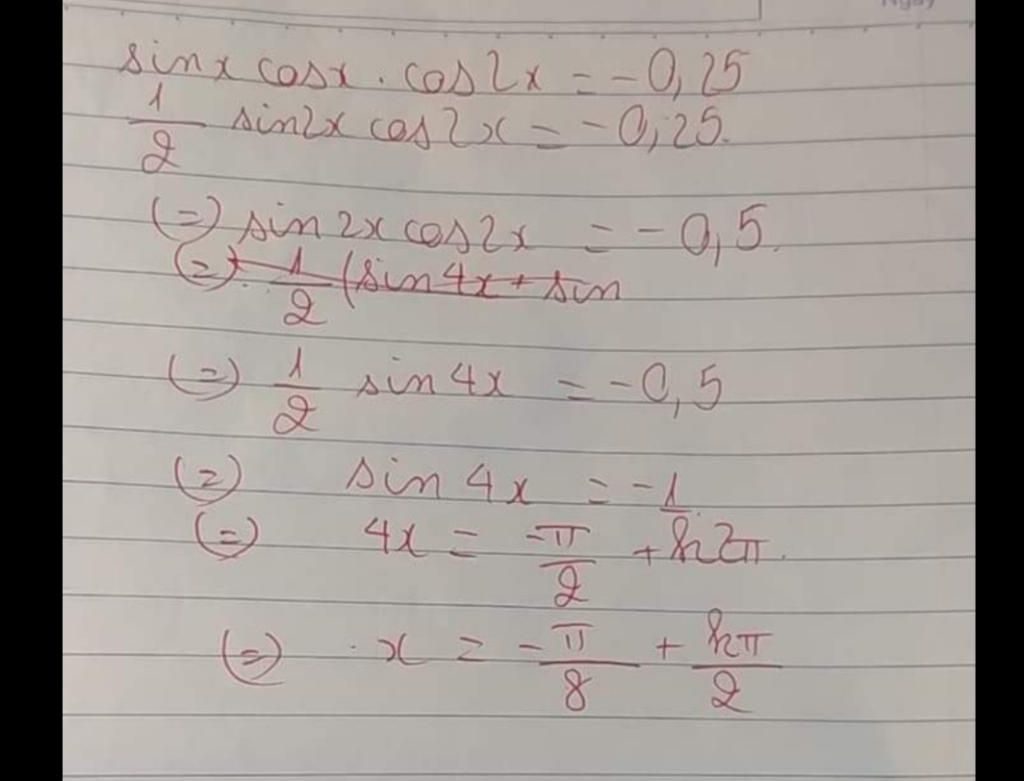 sinx cosx . cos2x = -0,25
1/2 sin2x cos2x = -0,25.
(=) sin2x cos2x = -0,5.
(=) 1/2 (sin4x + sin
(=) 1/2 sin4x = -0,5
(=) sin4x = -1
(=) 4x = -π/2 + k2π.
(=) x = -π/8 + kπ/2